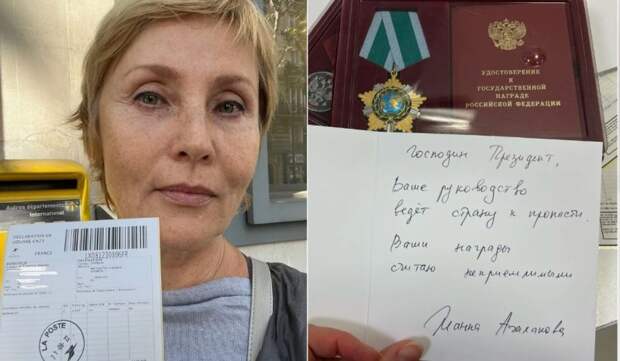 Autres départements
International
DECLARATION EN
DOUANE CN23
FRANCE
LA POSTE
УДОСТОВЕРЕНИЕ
К
ГОСУДАРСТВЕННОЙ
НАГРАДЕ
РОССИЙСКОЙ ФЕДЕРАЦИИ
Господин Президент,
Ваше руководство
ведёт страну к пропасти.
Ваши награды
считаю неприемлимыми
Жанна Агалакова